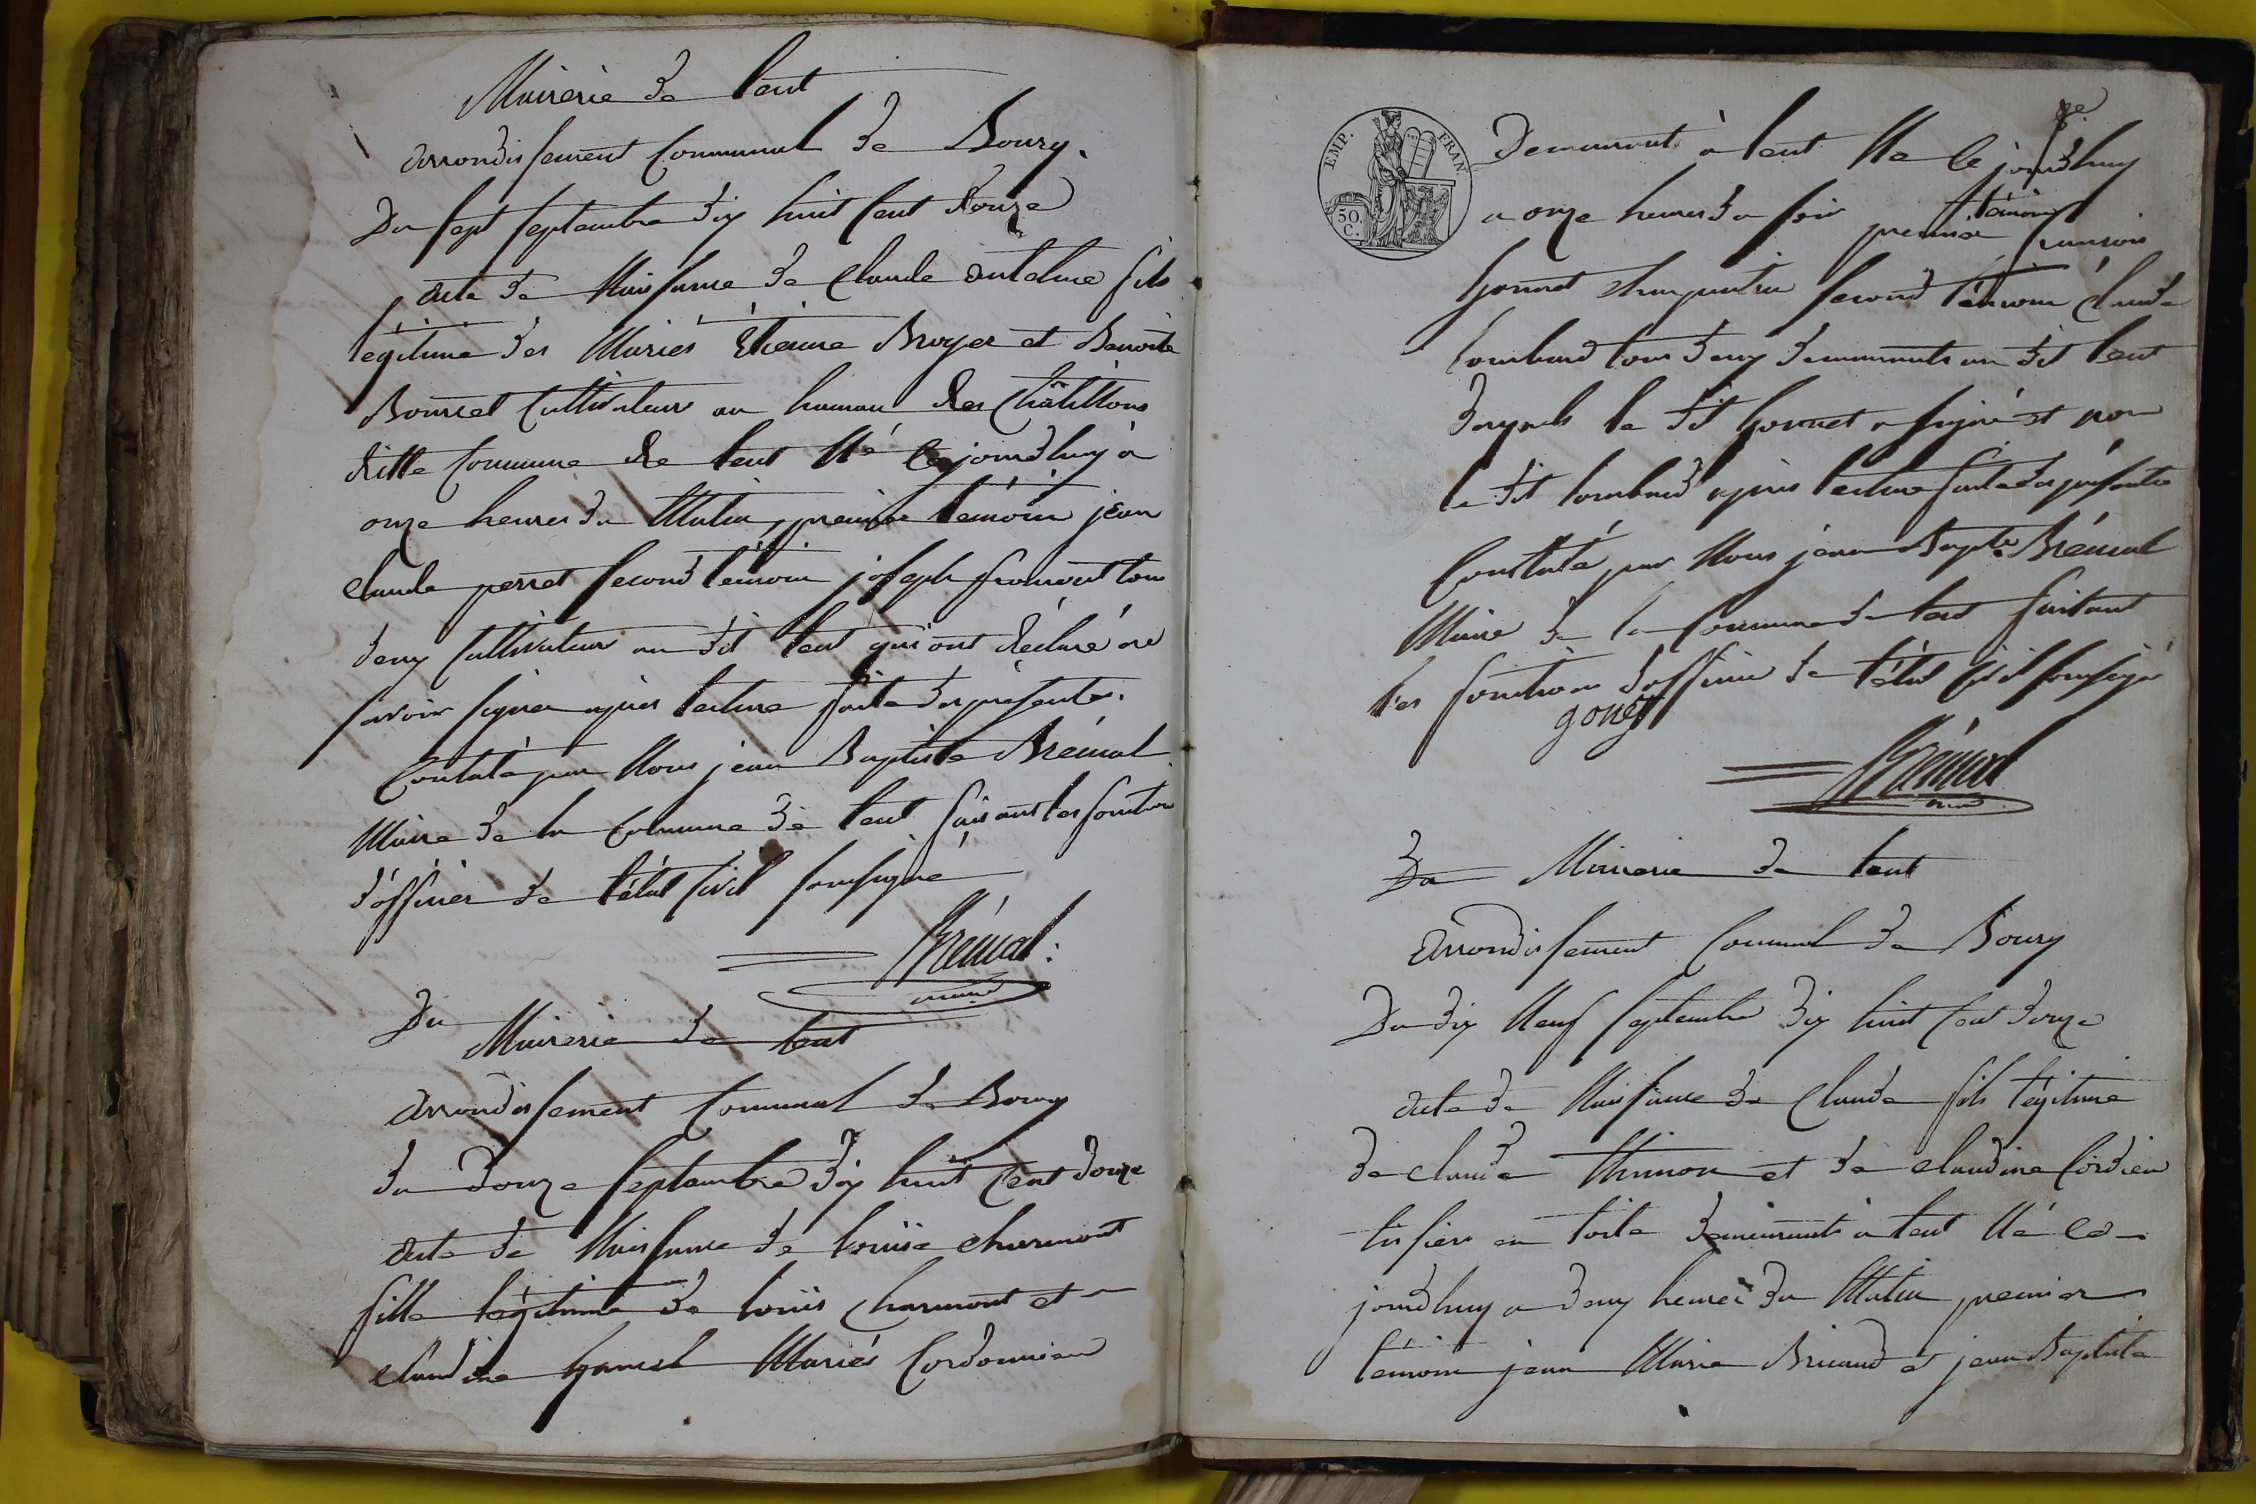 Mairerie de lent
arrondissement Communal de Bourg.
Du sept septembre dix huit cent douze
acte de Naissance de Claude antelme fils
légitime des Mariés Etienne Broyer et Benoite
Bourcet Cultivateur au hameau des Chatillons
ditte Commune de lent Né cejourdhuy à
onze heures du Matin, premier témoin jean
claude perret second témoin joseph froment tous
deux Cultivateurs au dit lent qui ont déclaré ne
savoir signer après lecture faite des présentes.
Contaté par Nous jean Baptiste Brémal
Maire de la Commune de lent faisant les fonction
d'officier de l'état Civil soussigné
Brémal:
maire
Du
Mairerie de lent
arrondissement Communal de Bourg
du Douze septembre dix huit Cent Douze
acte de Naissance de louise charmont
fille légitime de louis Charmont et
claudine Mariés Cordonnier
EMP. FRAN.
50. C.
Demeurant à lent Né le jourdhuy
a onze heures du soir premier témoin francois
Gonnet charpentier second témoin claude
lombard tous deux demeurants au dit lent
desquels le dit Gonnet a signé et non
le dit lombard après lecture faite des présentes
Constaté par Nous jean Bapte Brémal
Maire de la Commune de lent faisant
les fonctions d'officier de l'état Civil soussigné
gonet
Brémal
maire
Du Mairerie de lent
Arrondissement Communal de Bourg
Du dix Neuf septembre dix huit Cent douze
acte de Naissance de Claude fils légitime
de claude Thimon et de claudine Cordier
tissier en toile demeurant à lent Né ce
jourdhuy a deux heures du Matin premier
témoin jean Marie Bricaud et jean Baptiste